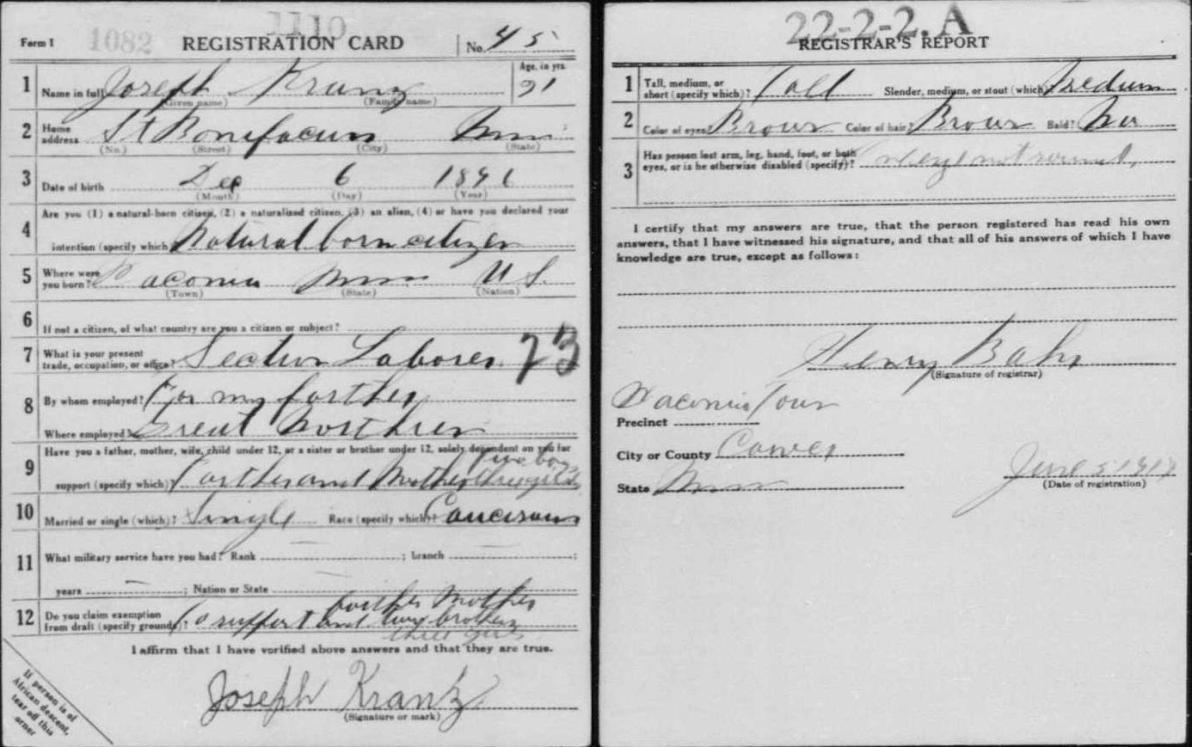 1110
Form 1 1082 REGISTRATION CARD No. 45
1 Name in full Joseph Kranz Age, in yrs. 21
(Given name) (Family name)
2 Home address St Bonifacius Minn
(No.) (Street) (City) (State)
3 Date of birth Dec 6 1896
(Month) (Day) (Year)
4 Are you (1) a natural-born citizen, (2) a naturalized citizen, (3) an alien, (4) or have you declared your
intention (specify which)? Natural born citizen
5 Where were you born? Waconia Minn U S.
(Town) (State) (Nation)
6 If not a citizen, of what country are you a citizen or subject?
7 What is your present trade, occupation, or office? Section Laborer 23
8 By whom employed? For my farther
Where employed? Great Northren
9 Have you a father, mother, wife, child under 12, or a sister or brother under 12, solely dependent on you for
two boys
support (specify which)? Farther and Mother three girls
10 Married or single (which)? Single Race (specify which)? Caucisous
11 What military service have you had? Rank ; branch ;
years ; Nation or State
farther Mother
12 Do you claim exemption from draft (specify grounds)? To support and two brothers
three girls
I affirm that I have verified above answers and that they are true.
Joseph Krantz
(Signature or mark)
If person is of
African descent,
tear off this
corner
22-2-2. A
REGISTRAR'S REPORT
1 Tall, medium, or short (specify which)? Tall Slender, medium, or stout (which)? Medium
2 Color of eyes Brown Color of hair Brown Bald? No
3 Has person lost arm, leg, hand, foot, or both
eyes, or is he otherwise disabled (specify)? not
I certify that my answers are true, that the person registered has read his own
answers, that I have witnessed his signature, and that all of his answers of which I have
knowledge are true, except as follows:
Henry Bahr
(Signature of registrar)
Precinct Waconia Town
City or County Carver
State Minn June 5 1917
(Date of registration)